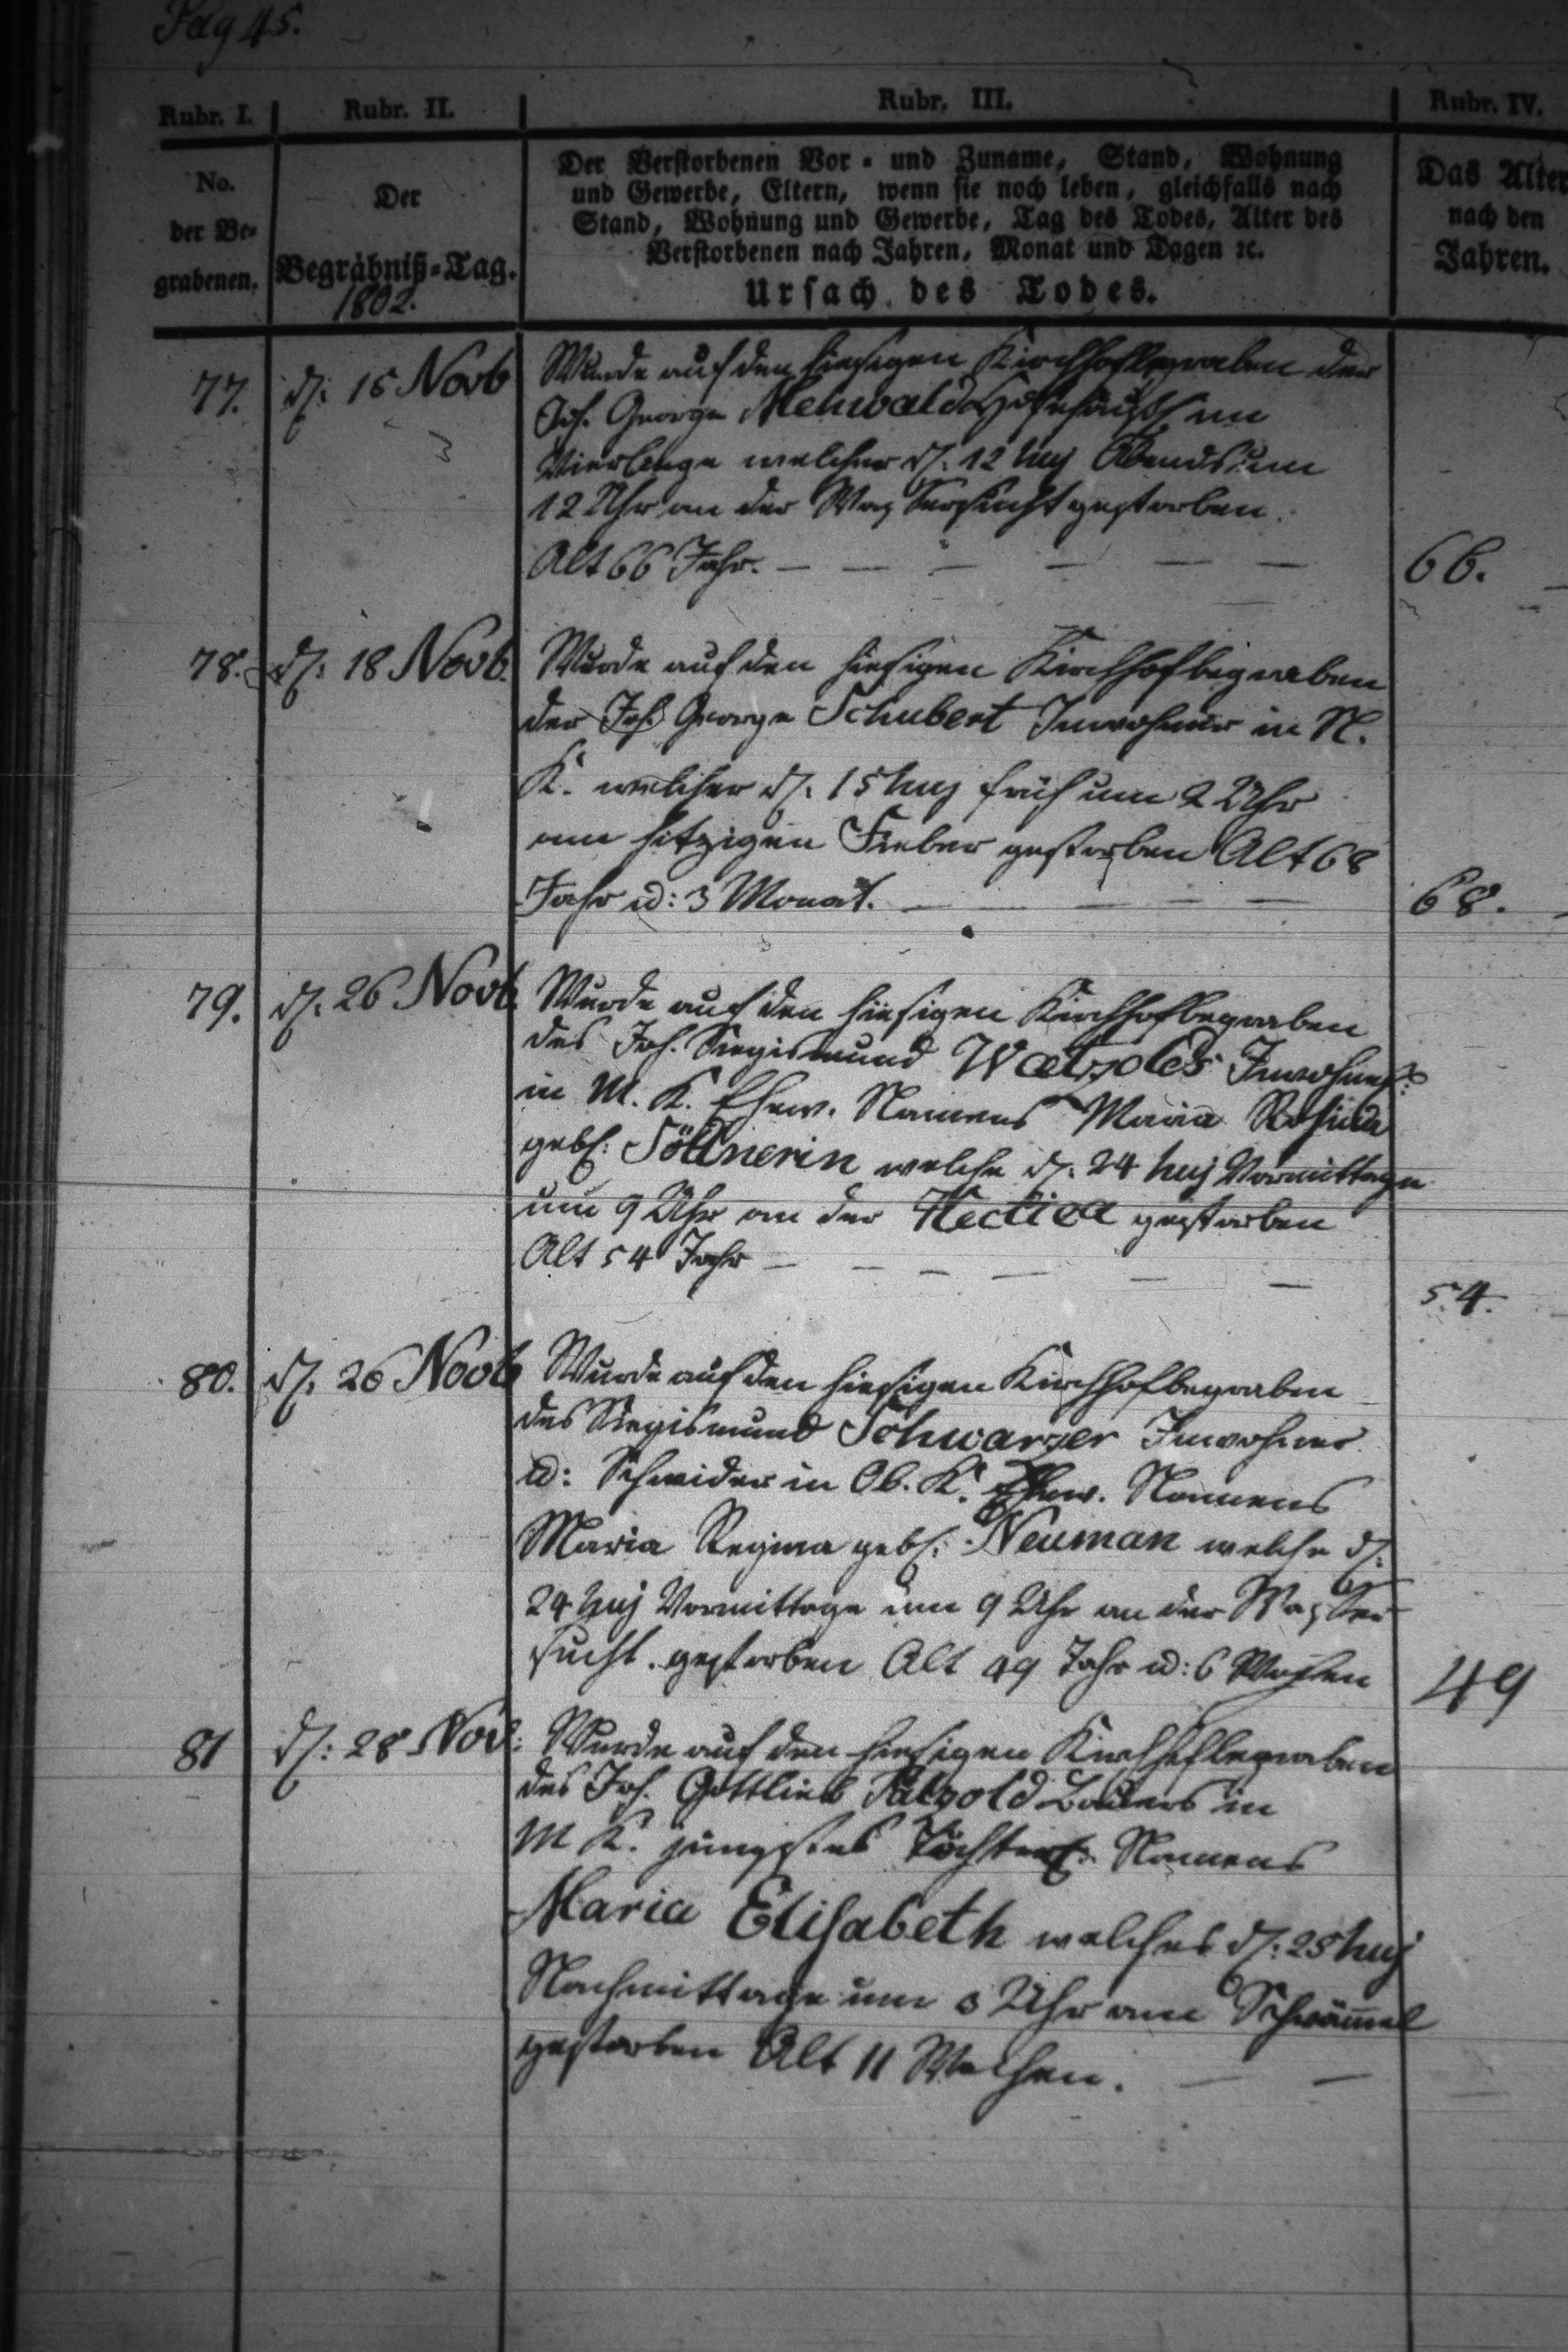 Pag 45.
Rubr. I. Rubr. II. Rubr. III. Rubr. IV.
No. der Be=grabenen.
Der Begräbniß=Tag.
1802.
Der Verstorbenen Vor= und Zuname, Stand, Wohnung
und Gewerbe, Eltern, wenn sie noch leben, gleichfalls nach
Stand, Wohnung und Gewerbe, Tag des Todes, Alter des
Verstorbenen nach Jahren, Monat und Tagen ꝛc.
Ursach des Todes.
Das Alter
nach den
Jahren.
77. d. 15 Novb Wurde auf den hiesigen Kirchhof begraben der
Joh. George Mehwald im
welcher d. 12 huj Abends um
12 Uhr an der Wassersucht gestorben.
Alt 66 Jahr. 66.
78. d. 18 Novb. Wurde auf den hiesigen Kirchhof begraben
der Joh. George Schubert Inwohner in N.
K. welcher d. 15 huj früh um 2 Uhr
am hitzigen Fieber gestorben Alt 68
Jahr u: 3 Monat. 68.
79. d. 26 Novb Wurde auf den hiesigen Kirchhof begraben
des Joh. Siegismund Inwohners
in M. K. Ehew. Namens Maria Rosina
geb. Söllnerin welche d. 24 huj Vormittage
um 9 Uhr an der Hectica gestorben
Alt 54 Jahr 54.
80. d. 26 Novb Wurde auf den hiesigen Kirchhof begraben
des Siegismund Schwarzer Inwohner
u: Schneider in Ob. K. Ehew. Namens
Maria Regina geb. Neuman welche d.
24 huj Vormittage um 9 Uhr an der Wasser
sucht gestorben Alt 49 Jahr u: 6 Wochen 49
81 d: 28 Nov: Wurde auf den hiesigen Kirchhof begraben
des Joh. Gottlieb Pätzold Bauers in
M K. jüngstes Töchterl. Namens
Maria Elisabeth welches d: 25 huj
Nachmittage um 3 Uhr am
gestorben Alt 11 Wochen.